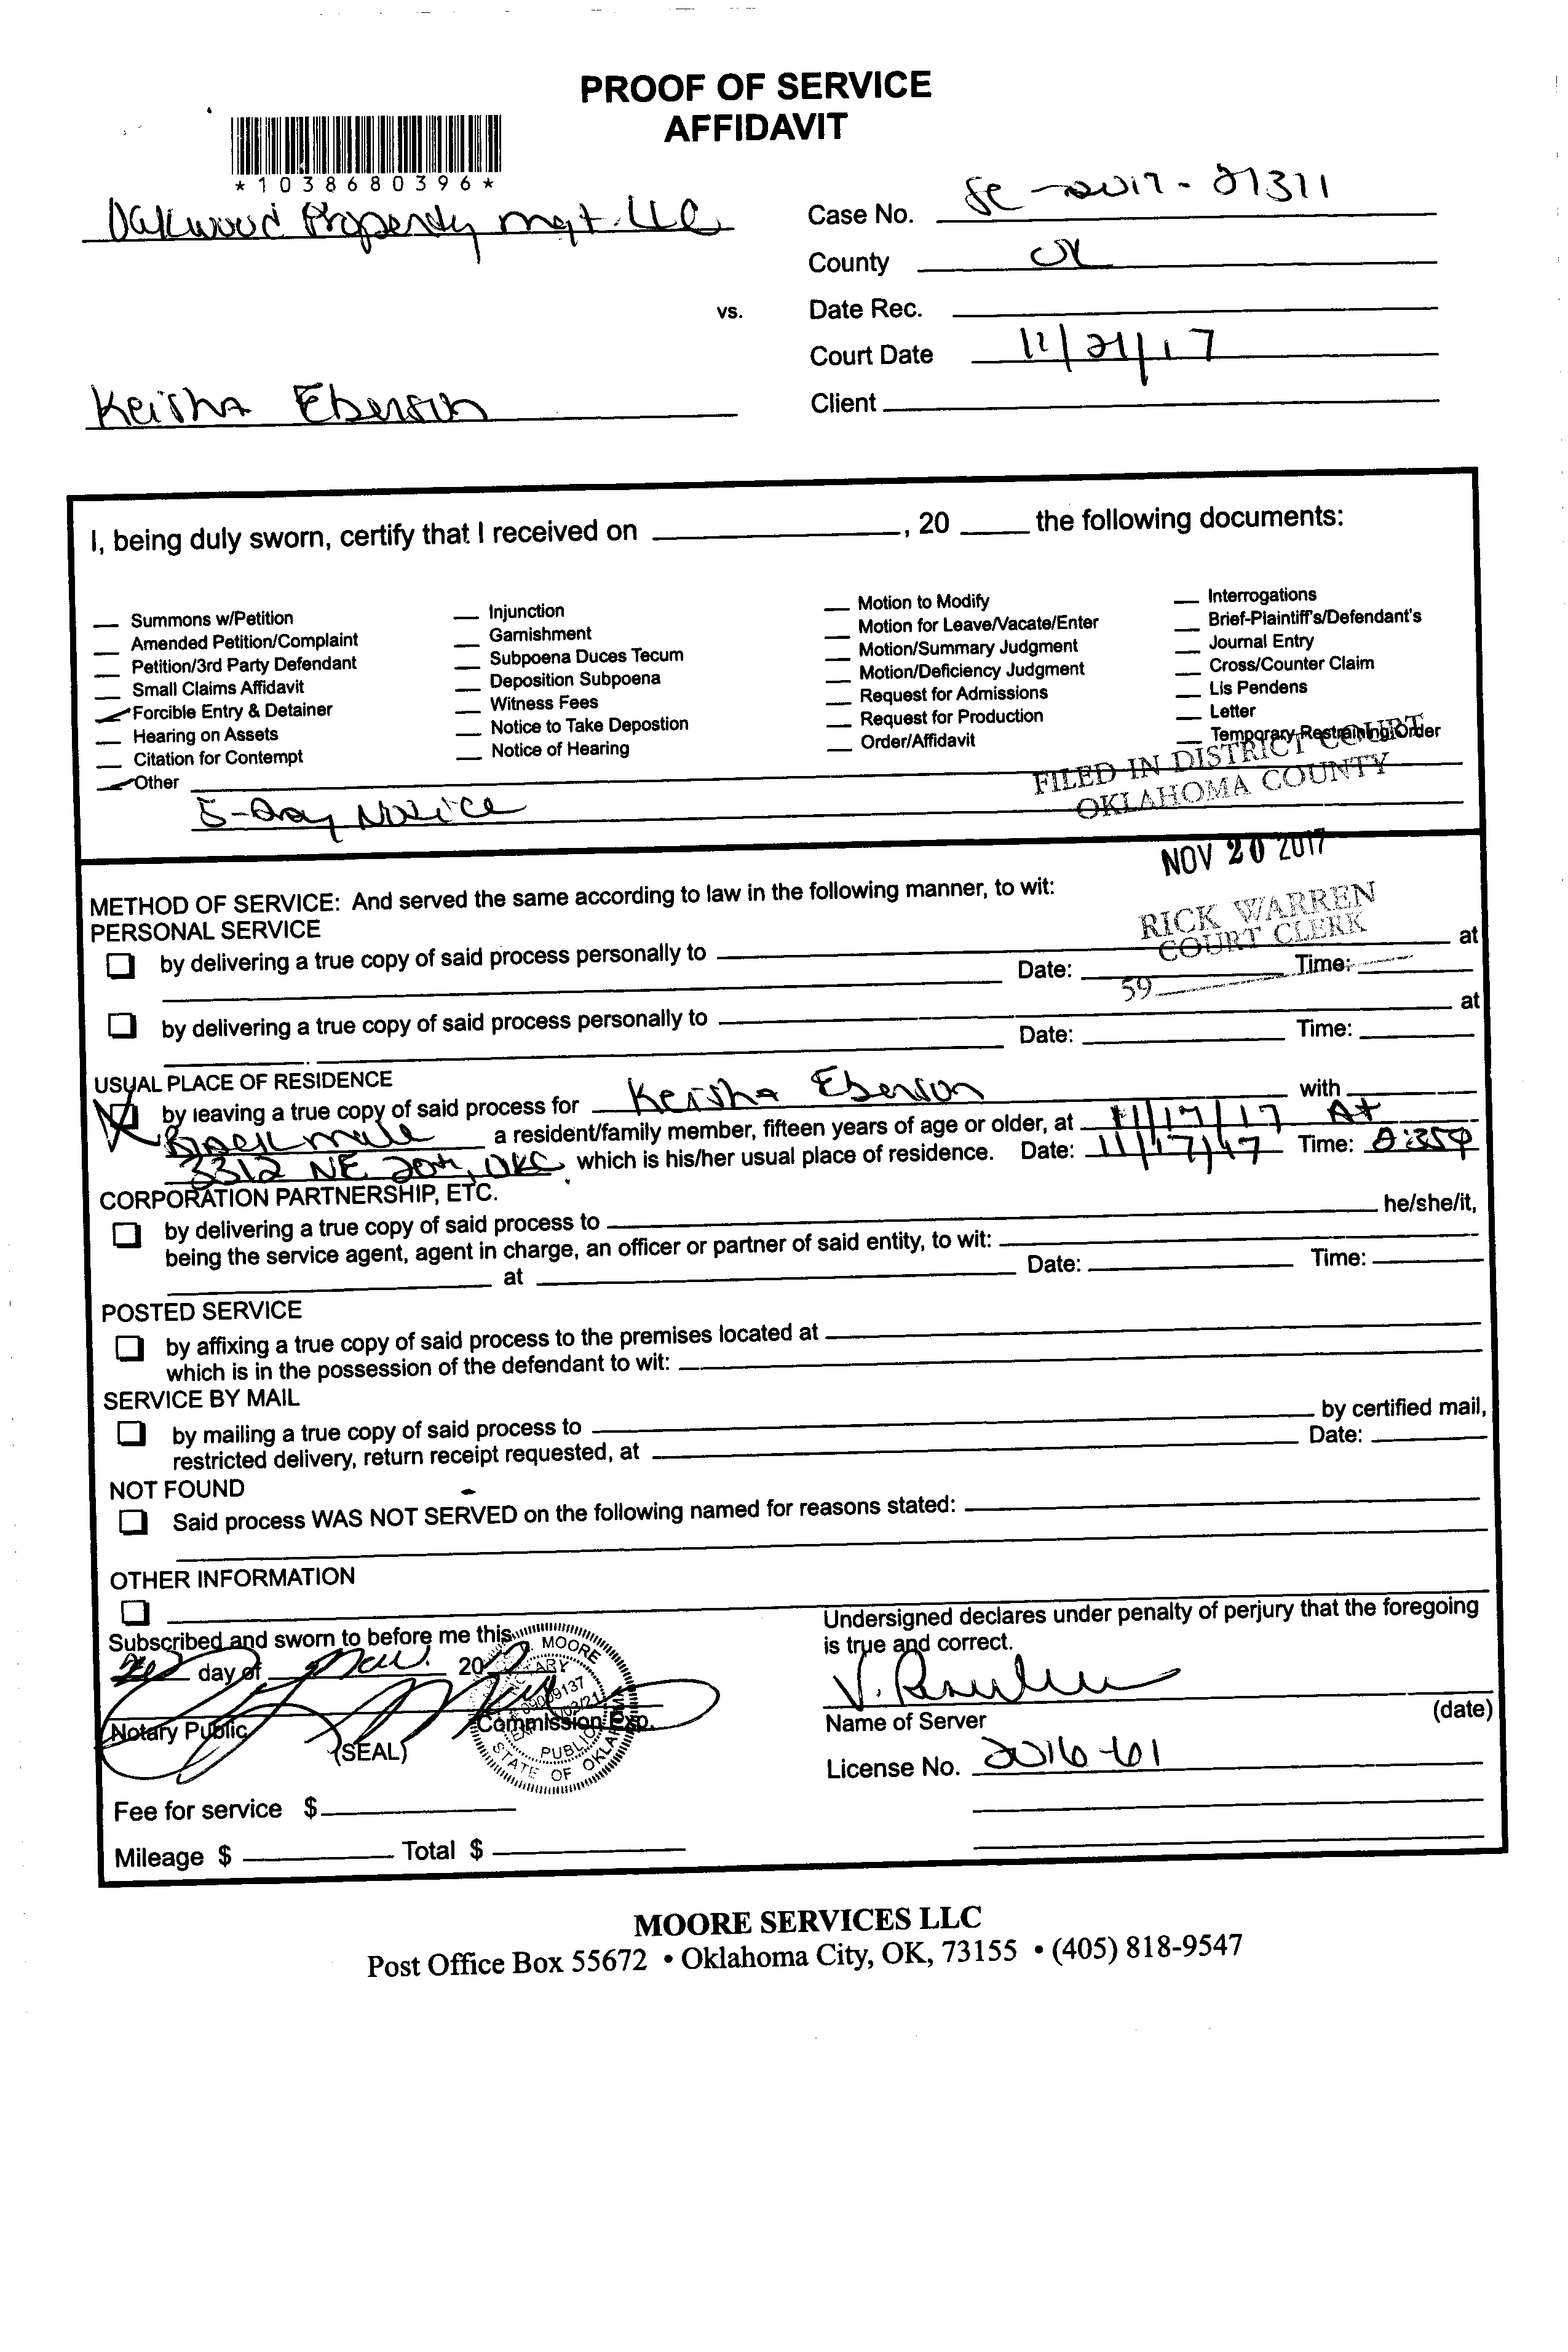 PROOF OF SERVICE
AFFIDAVIT
*1038680396*
Oakwood Property Mgt. LLC
Case No. SC-2017-21311
County OK
vs.
Date Rec.
Court Date 11/21/17
Keisha Eberson
Client
I, being duly sworn, certify that I received on ____, 20 ____ the following documents:
Summons w/Petition
Amended Petition/Complaint
Petition/3rd Party Defendant
Small Claims Affidavit
Forcible Entry & Detainer
Hearing on Assets
Citation for Contempt
Other
5-Day Notice
Injunction
Garnishment
Subpoena Duces Tecum
Deposition Subpoena
Witness Fees
Notice to Take Depostion
Notice of Hearing
Motion to Modify
Motion for Leave/Vacate/Enter
Motion/Summary Judgment
Motion/Deficiency Judgment
Request for Admissions
Request for Production
Order/Affidavit
Interrogations
Brief-Plaintiff's/Defendant's
Journal Entry
Cross/Counter Claim
Lis Pendens
Letter
Temporary Restraining Order
FILED IN DISTRICT COURT
OKLAHOMA COUNTY
NOV 20 2017
RICK WARREN
COURT CLERK
59
METHOD OF SERVICE: And served the same according to law in the following manner, to wit:
PERSONAL SERVICE
by delivering a true copy of said process personally to ____ at
Date: ____ Time: ____
by delivering a true copy of said process personally to ____ at
Date: ____ Time: ____
USUAL PLACE OF RESIDENCE
by leaving a true copy of said process for Keisha Eberson with ____
Black male a resident/family member, fifteen years of age or older, at 11/17/17 At
3312 NE 20th, OKC, which is his/her usual place of residence. Date: 11/17/17 Time: 2:35p
CORPORATION PARTNERSHIP, ETC.
by delivering a true copy of said process to ____ he/she/it,
being the service agent, agent in charge, an officer or partner of said entity, to wit: ____
____ at ____ Date: ____ Time: ____
POSTED SERVICE
by affixing a true copy of said process to the premises located at ____
which is in the possession of the defendant to wit: ____
SERVICE BY MAIL
by mailing a true copy of said process to ____ by certified mail,
restricted delivery, return receipt requested, at ____ Date: ____
NOT FOUND
Said process WAS NOT SERVED on the following named for reasons stated: ____
OTHER INFORMATION
Subscribed and sworn to before me this
20 day of Nov. 20
Notary Public
(SEAL)
Commission Exp.
MOORE
NOTARY
PUBLIC
STATE OF OKLAHOMA
Undersigned declares under penalty of perjury that the foregoing
is true and correct.
Name of Server
(date)
License No. 2016-61
Fee for service $
Mileage $ ____ Total $ ____
MOORE SERVICES LLC
Post Office Box 55672 • Oklahoma City, OK, 73155 • (405) 818-9547